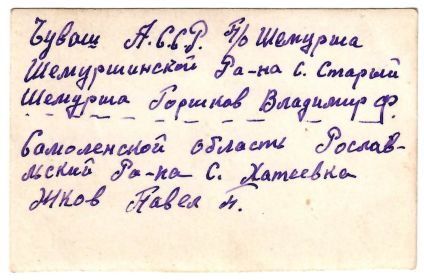 Чуваш А.С.С.Р. П/о Шемурша
Шемуршинской Ра-на С. Старый
Шемурша Горшков Владимир Ф.
Самоленской область Рослав-
льский Ра-на С. Хатеевка
Жков Павел Н.